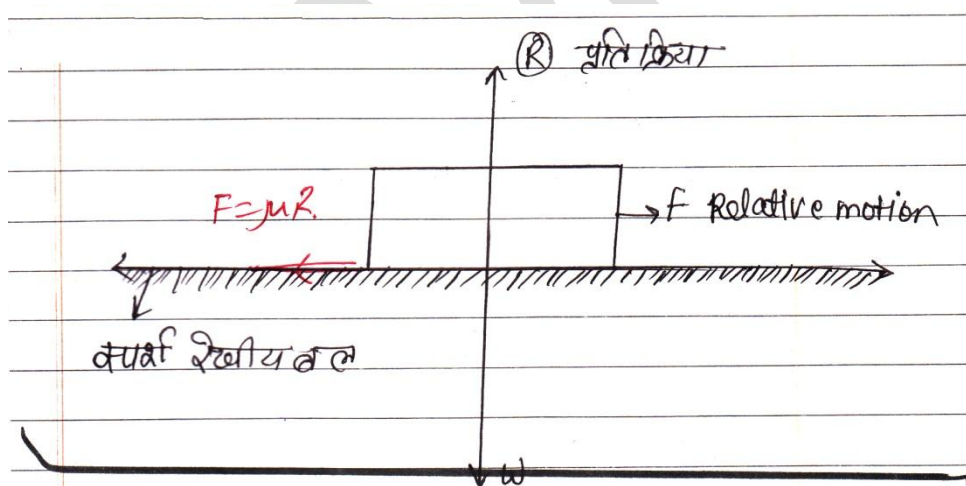 R प्रतिक्रिया
F=μR.
F Relative motion
स्पर्श रेखीय बल
W